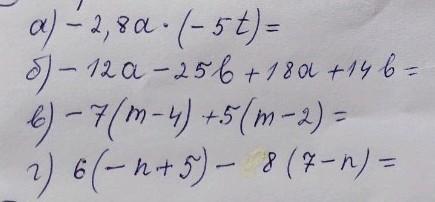 а) - 2,8a · (- 5t) =
б) - 12a - 25b + 18a + 14b =
в) - 7(m - 4) + 5(m - 2) =
г) 6(- n + 5) - 8(7 - n) =